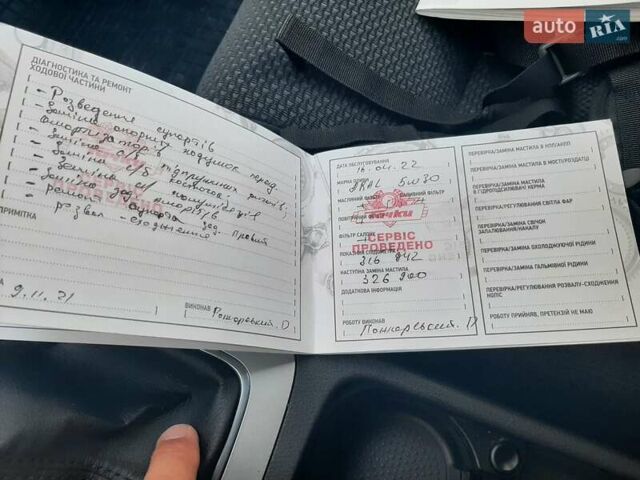 auto RIA .com
ДІАГНОСТИКА ТА РЕМОНТ
ХОДОВОЇ ЧАСТИНИ
- Розведення супортів
- Заміна опорних подушок перед.
амортизаторів
- Заміна
- Заміна
- Заміна
- Заміна зад. амортів
- Ремонт супорта зад. правий
розвал сходження
ПРИМІТКА
9.11.21
ВИКОНАВ Пожарєвський. D
ДАТА ОБСЛУГОВУВАННЯ
16.04.22
МАРКА ОЛИВИ
ARAL 5W30
МАСЛЯНИЙ ФІЛЬТР
ПАЛИВНИЙ ФІЛЬТР
+
ПОВІТРЯНИЙ
ФІЛЬТР САЛОНУ
СЕРВІС
ПРОВЕДЕНО
316 942
НАСТУПНА ЗАМІНА МАСТИЛА
326 900
ДОДАТКОВА ІНФОРМАЦІЯ
РОБОТУ ВИКОНАВ Пожарєвський. D
ПЕРЕВІРКА/ЗАМІНА МАСТИЛА В КПП/АКПП
ПЕРЕВІРКА/ЗАМІНА МАСТИЛА В МОСТІ/РОЗДАТЦІ
ПЕРЕВІРКА/ЗАМІНА МАСТИЛА
В ГІДРОПІДСИЛЮВАЧІ КЕРМА
ПЕРЕВІРКА/РЕГУЛЮВАННЯ СВІТЛА ФАР
ПЕРЕВІРКА/ЗАМІНА СВІЧОК
ЗАПАЛЮВАННЯ/НАКАЛУ
ПЕРЕВІРКА/ЗАМІНА ОХОЛОДЖУЮЧОЇ РІДИНИ
ПЕРЕВІРКА/ЗАМІНА ГАЛЬМІВНОЇ РІДИНИ
ПЕРЕВІРКА/РЕГУЛЮВАННЯ РОЗВАЛУ-СХОДЖЕННЯ
КОЛІС
РОБОТУ ПРИЙНЯВ, ПРЕТЕНЗІЙ НЕ МАЮ